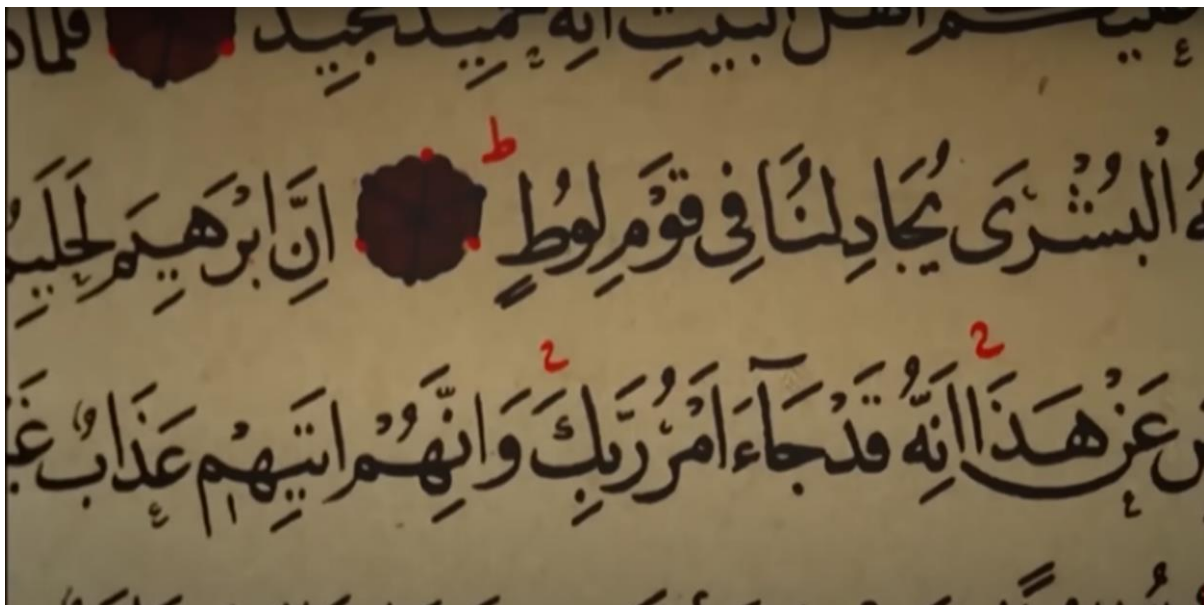 عليكم اهل البيت انه حميد مجيد فلما
هُ الْبُشْرٰى يُجَادِلُنَا فِى قَوْمِ لُوطٍ ط اِنَّ اِبْرٰهِيمَ لَحَلِيمٌ
عَنْ هٰذَا ۚ اِنَّهُ قَدْ جَٓاءَ اَمْرُ رَبِّكَ ۚ وَاِنَّهُمْ اٰتِيهِمْ عَذَابٌ غَ